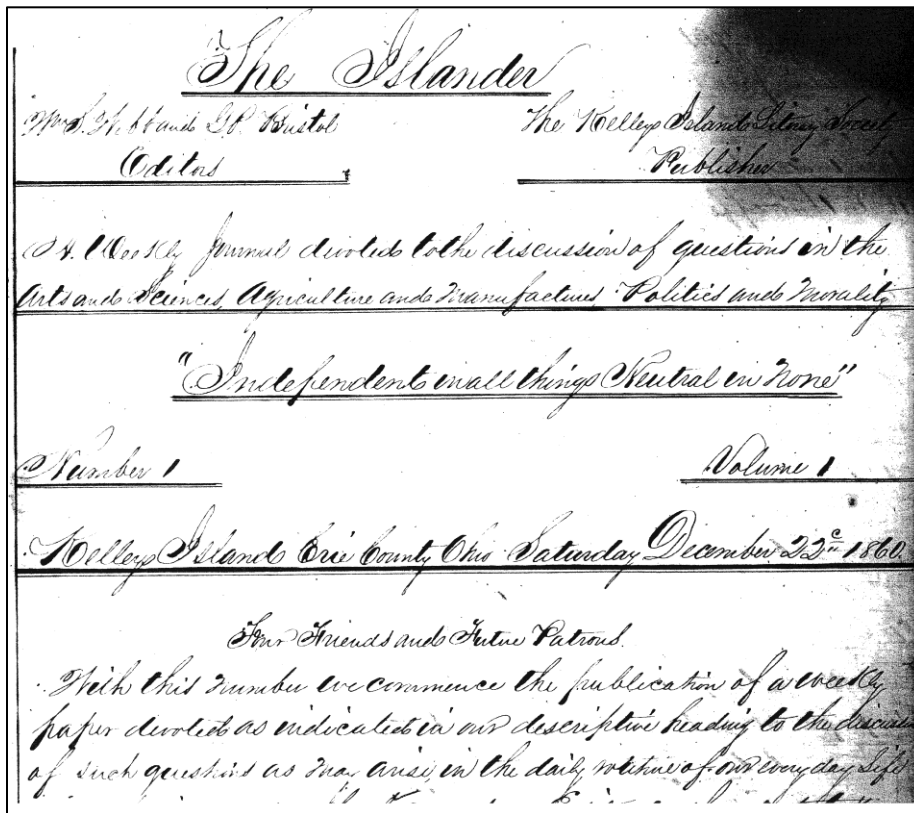 The Islander
Wm. S. Webb and G.P. Bristol
The Kelleys Island Literary Society
Editors
Publisher
A Weekly Journal devoted to the discussion of questions in the
Arts and Sciences, Agriculture and Manufactures. Politics and Morality
"Independent in all things Neutral in None"
Number 1
Volume 1
Kelleys Island Erie County Ohio Saturday December 22 1860.
Friends and Future Patrons.
With this number we commence the publication of a weekly
paper devoted as indicated in our descriptive heading to the
of such questions as may arise in the daily routine of our every day life